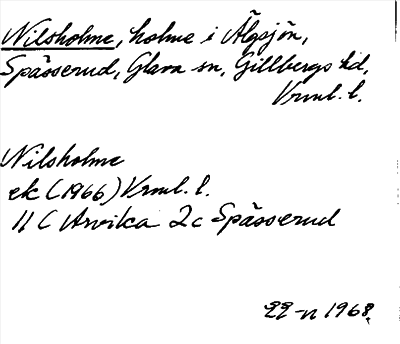 Nilsholme, holme i Älgsjön,
Spässerud, Glava sn, Gillbergs hd,
Vrml. l.
Nilsholme
ek (1966) Vrml. l.
11 C Arvika 2c Spässerud
1968